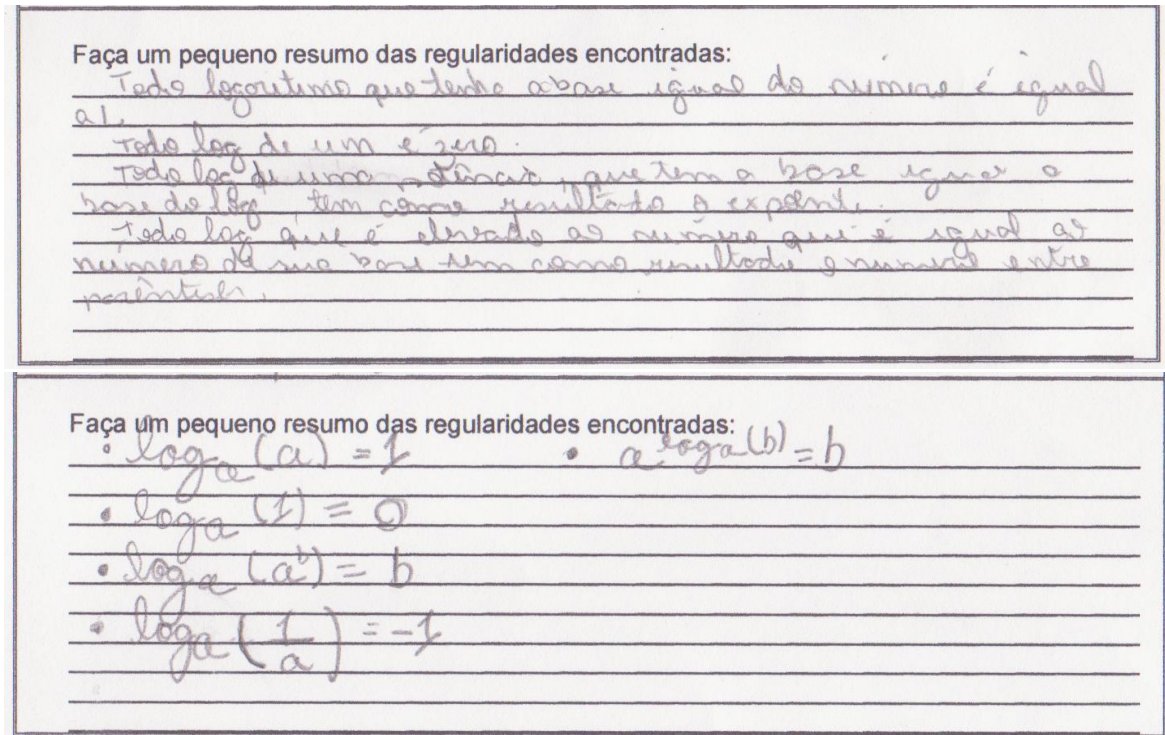 Faça um pequeno resumo das regularidades encontradas:
Todo logoritimo que tenha a base igual do número é igual
a 1.
Todo log de um é zero.
Todo log de uma potência, que tem a base igual a
base do log, tem como resultado o expoente.
Todo log que é elevado ao número que é igual ao
número da sua base tem como resultado o numero entre
parêntish.
Faça um pequeno resumo das regularidades encontradas:
• logₐ (a) = 1 • a^logₐ(b) = b
• logₐ (1) = 0
• logₐ (aᵇ) = b
• logₐ (1/a) = -1